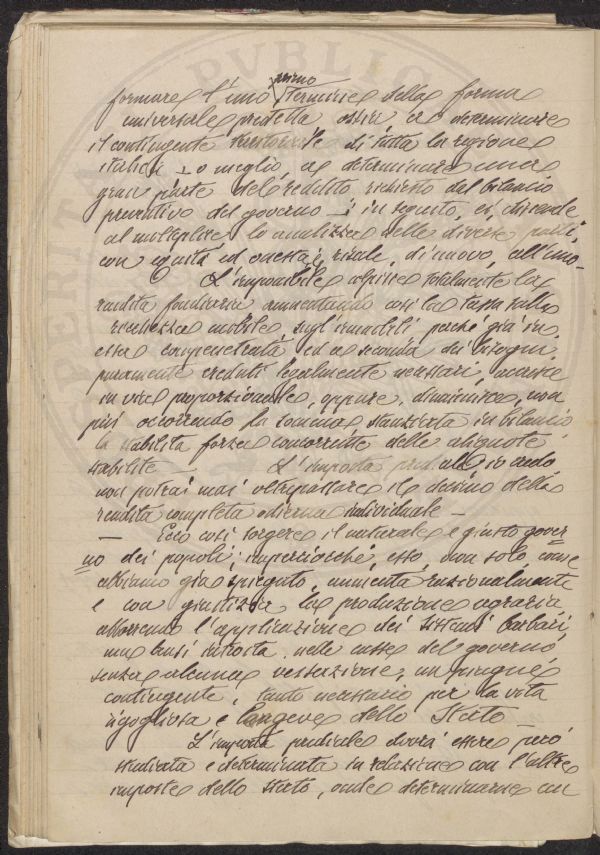 formare l'uno primo termine della forma
universale predetta ossia a determinare
il contingente territoriale di tutta la regione
italica – o meglio, a determinare una
gran parte del reddito richiesto dal bilancio
preventivo del governo – ; in seguito, si discende
al multiplo, lo analizza nelle diverse parti,
con equità ed onestà e risale, di nuovo, all'uno –
L'imponibile colpisce totalmente la
rendita fondiaria aumentando così la tassa sulla
ricchezza mobile, sugl'immobili perché già in
essa compenetrata ed a seconda dei bisogni,
puramente creduti legalmente necessari, accresce
in via proporzionale, oppure, diminuisce, non
più occorrendo la somma, stanziata in bilancio
la stabilita forza concorrente delle aliquote
stabilite — L'imposta prediale, io credo,
non potrai mai oltrepassare il decimo della
rendita completa odierna individuale —
— Ecco così sorgere il naturale e giusto gover-
no dei popoli; imperciosché, esso, non solo come
abbiamo già spiegato, aumenta razionalmente
e con giustizia la produzione agraria,
aborrendo l'applicazione dei sistemi barbari,
ma anzi introita, nelle casse del governo
senza alcuna vessazione, un pingue
contingente, tanto necessario per la vita
rigogliosa e longeva dello Stato —
L'imposta prediale dovrà essere però
studiata e determinata in relazione con l'altre
imposte dello Stato, onde determinarne un